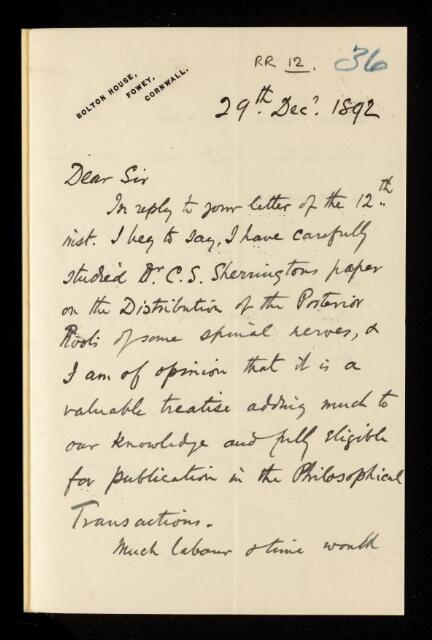 RR 12.
36
BOLTON HOUSE,
FOWEY,
CORNWALL.
29th. Decr. 1892
Dear Sir
In reply to your letter of the 12th.
inst. I beg to say, I have carefully
studied Dr C. S. Sherringtons paper
on the Distribution of the Posterior
Roots of some spinal nerves, &
I am of opinion that it is a
valuable treatise adding much to
our knowledge and fully eligible
for publication in the Philosophical
Transactions.
Much labour & time would